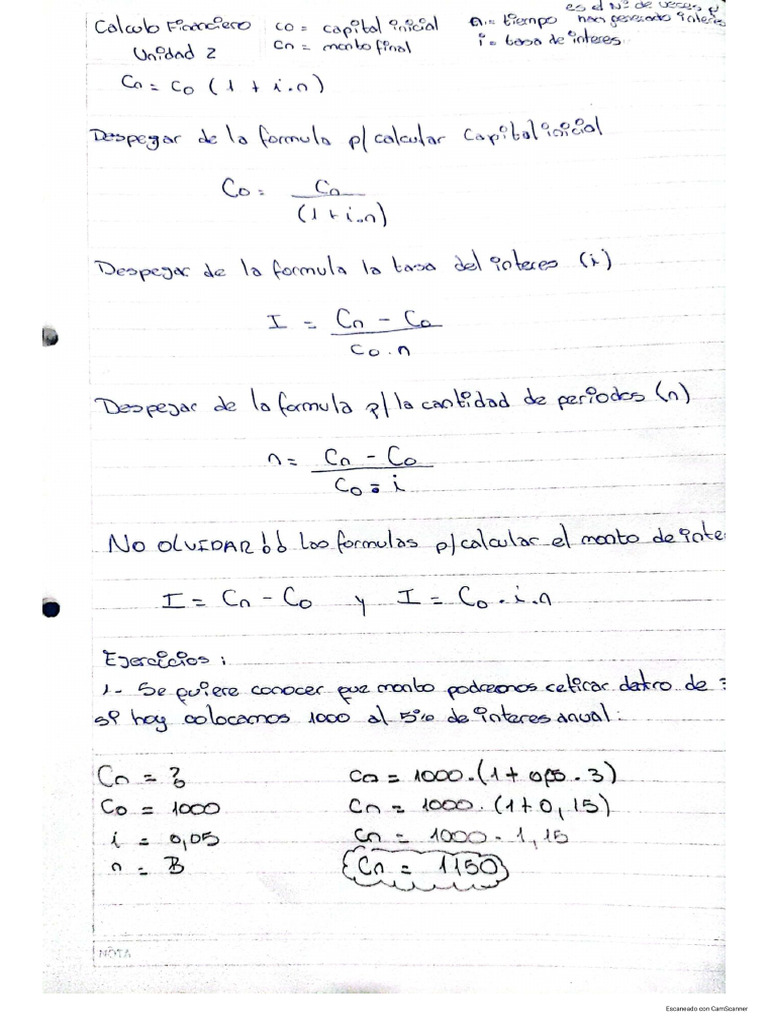 es el Nº de veces q
Calculo Financiero   co = capital inicial   n = tiempo   han generado interes
Unidad 2   Cn = monto final   i = tasa de interes
Cn = Co (1 + i.n)
Despegar de la formula p/ calcular Capital inicial
Co = Cn / (1 + i.n)
Despejar de la formula la tasa del interes (i)
I = Cn - Co / co . n
Despejar de la formula p/ la cantidad de periodos (n)
n = Cn - Co / Co . i
NO OLVIDAR!! Las formulas p/ calcular el monto de inte
I = Cn - Co y I = Co . i . n
Ejercicios:
1- Se quiere conocer que monto podremos retirar datro de 3
si hoy colocamos 1000 al 5% de interes anual:
Cn = ?   Cn = 1000.(1 + 0,05 . 3)
Co = 1000   Cn = 1000. (1+0,15)
i = 0,05   Cn = 1000 . 1,15
n = 3   Cn = 1150
NOTA
Escaneado con CamScanner